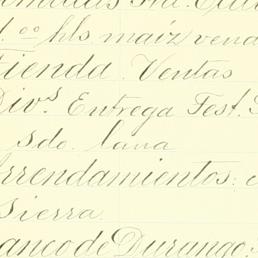 .00 hls maíz vend
Tienda. Ventas
Div.s Entrega Fest.
Sdo. lana
Arrendamientos:
Sierra.
Banco de Durango: